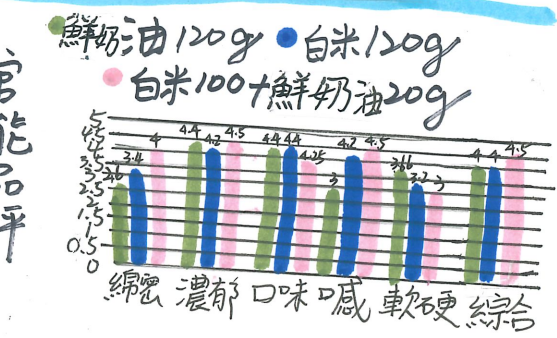 官能品評
鮮奶油120g 白米120g
白米100+鮮奶油20g
5
4.5
4
3.5
3
2.5
2
1.5
1
0.5
0
2.6 3.4 4
4.4 4.2 4.5
4.4 4.4 4.25
3 4.2 4.5
3.66 3.2 3
4 4 4.5
綿密 濃郁 口味 口感 軟硬 綜合